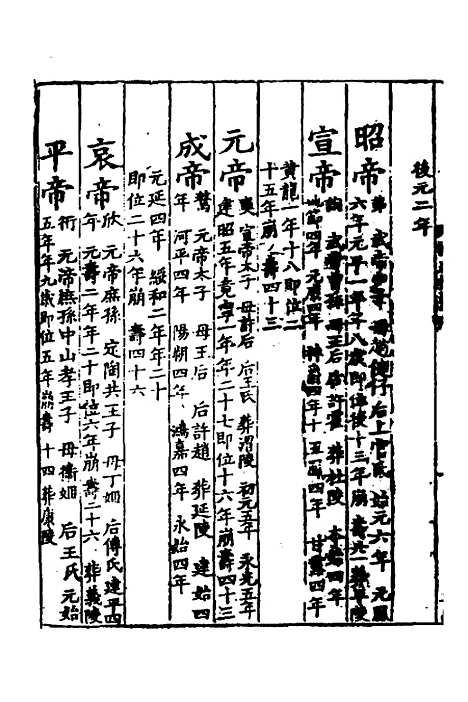 後元二年
昭帝
弗 武帝少子 母趙倢伃 后上官氏 始元六年 元鳳
六年元平一年年八歲即位後十三年崩壽 葬平陵
宣帝
詢 武帝曾孫 母王后 后許霍 葬杜陵 本始四年
地節四年 元康四年 神爵四年 五鳳四年 甘露四年
黃龍一年十八即位二
十五年崩壽四十三
元帝
奭 宣帝太子 母許后 后王氏 葬渭陵 初元五年 永光五年
建昭五年竟寧一年年二十七即位十六年崩壽四十三
成帝
驁 元帝太子 母王后 后許趙 葬延陵 建始四
年 河平四年 陽朔四年 鴻嘉四年 永始四年
元延四年 綏和二年年二十
即位二十六年崩 壽四十六
哀帝
欣 元帝庶孫 定陶共王子 母丁姬 后傅氏 建平四
年 元壽二年年二十即位六年崩壽二十六 葬義陵
平帝
衎 元帝庶孫中山孝王子 母衛姬 后王氏 元始
五年年九歲即位五年崩壽十四葬康陵